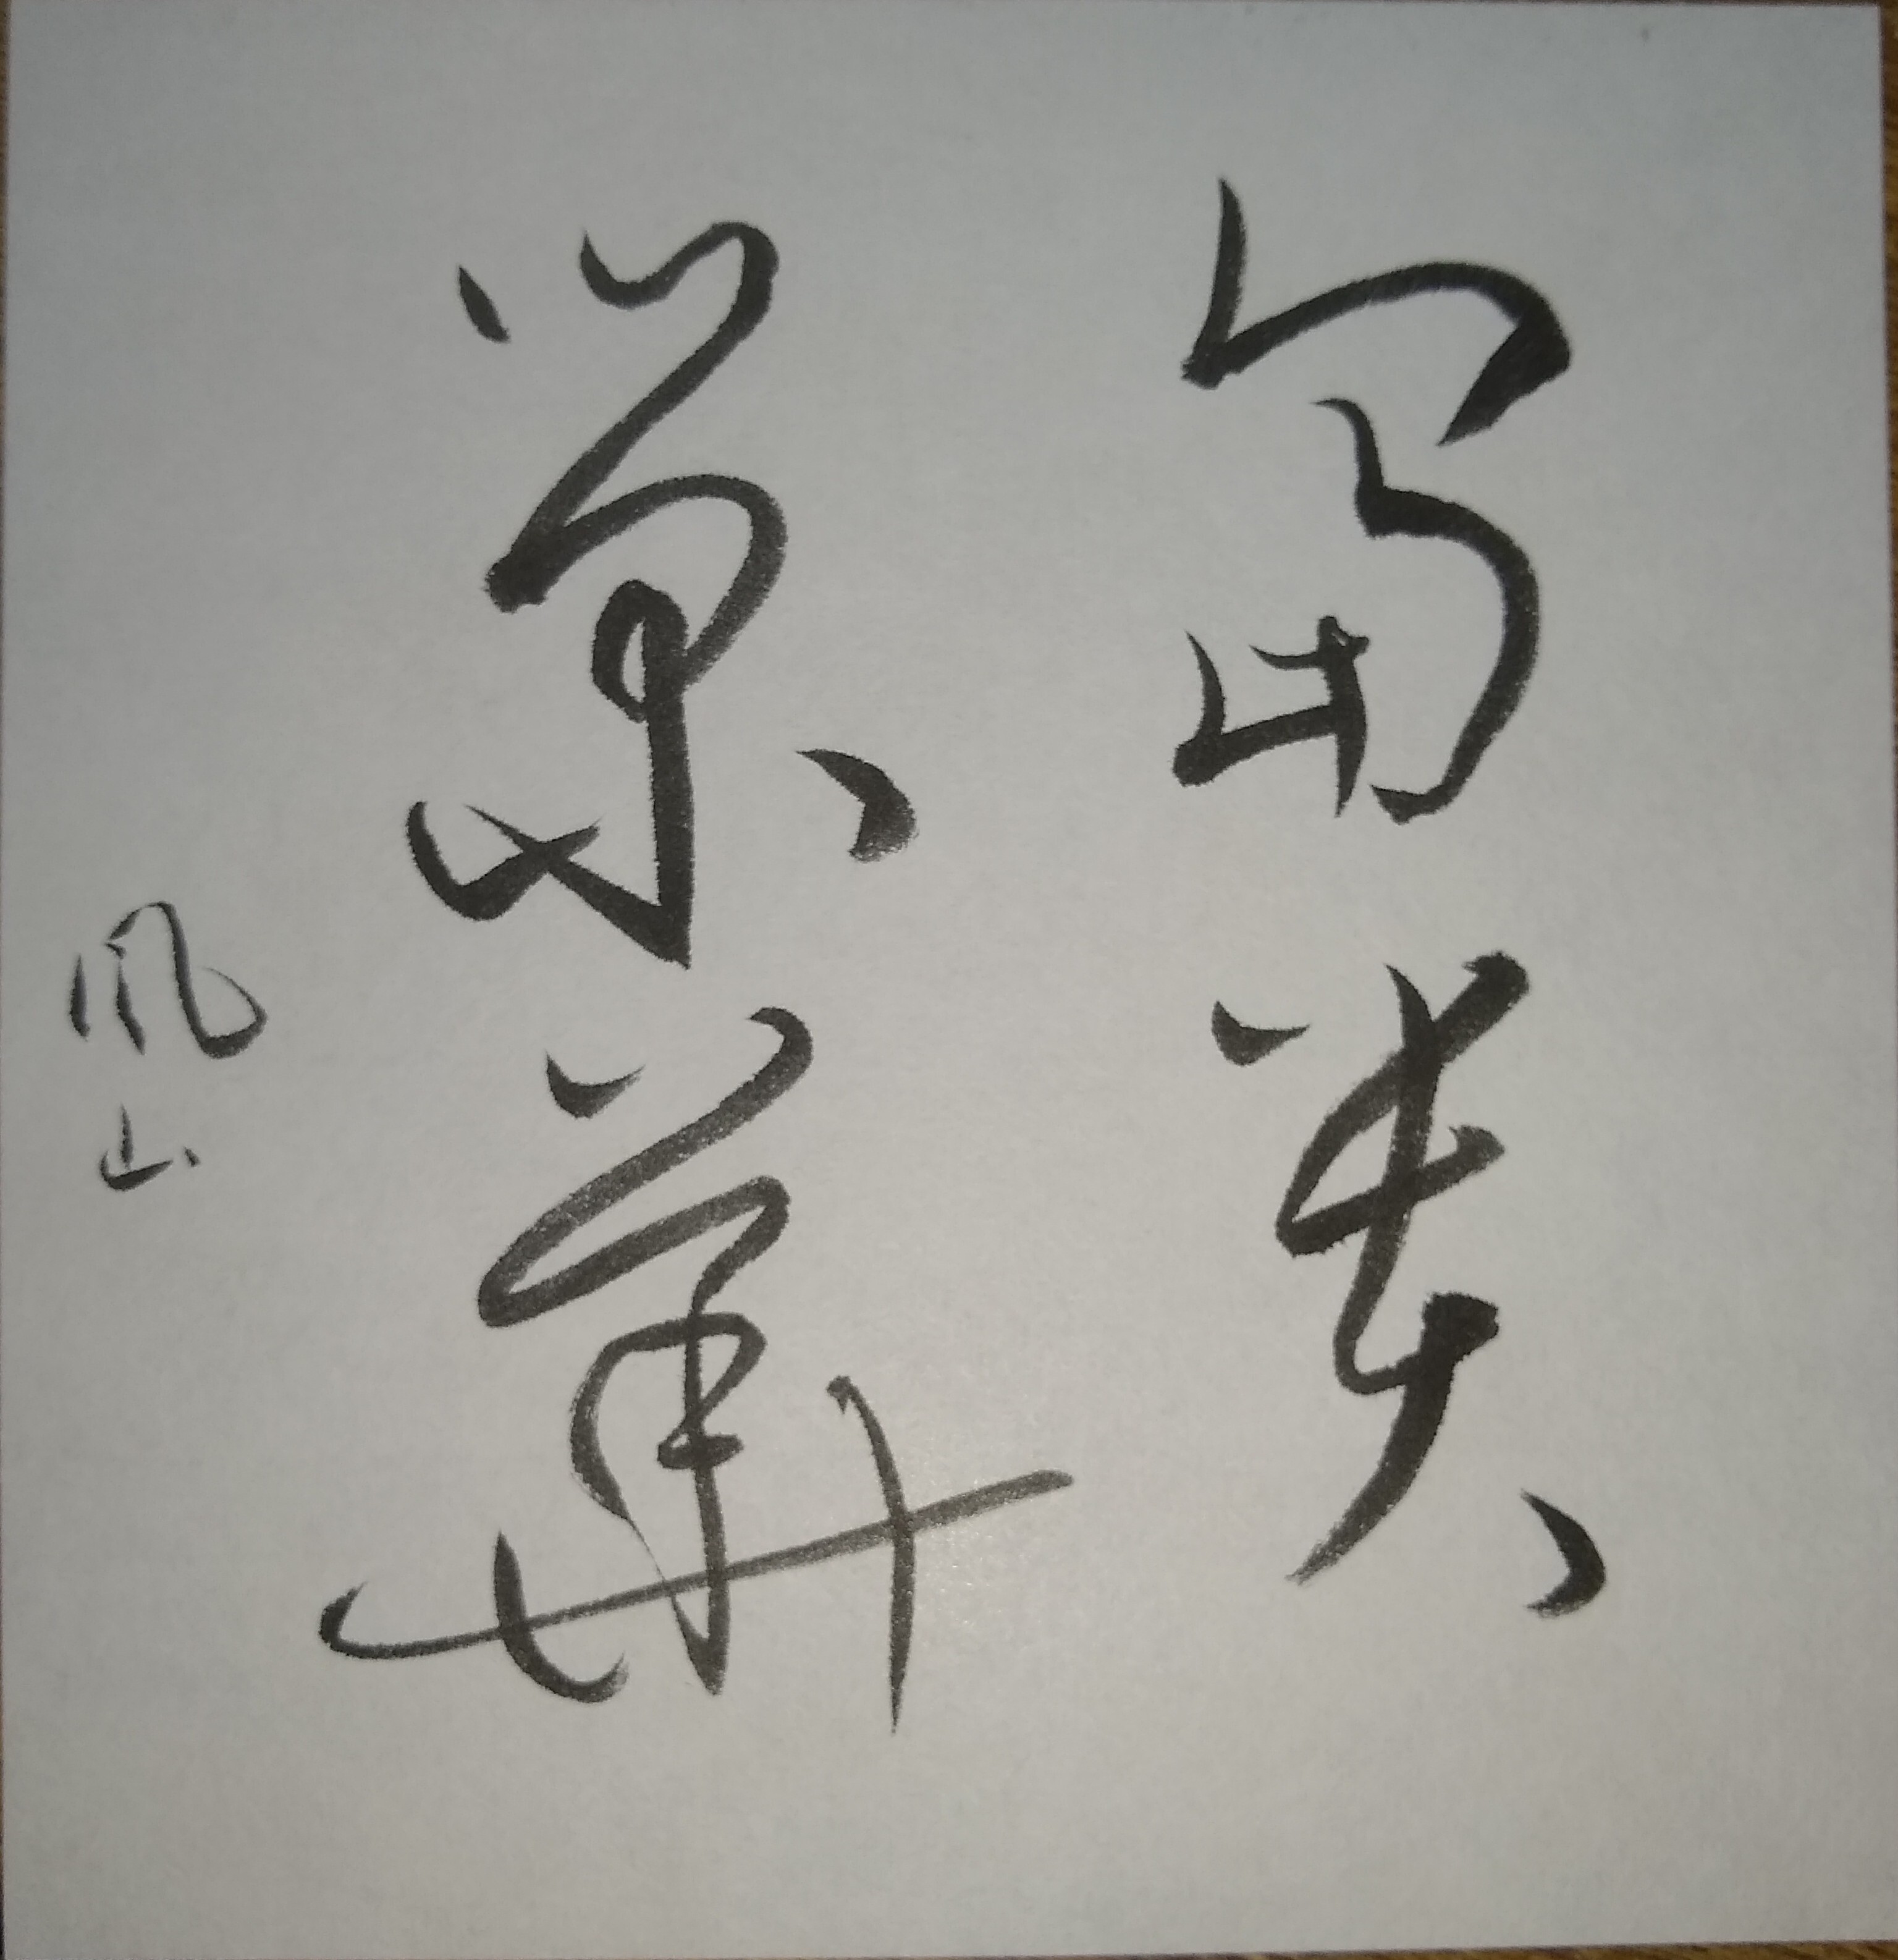 富貴
榮華
風山